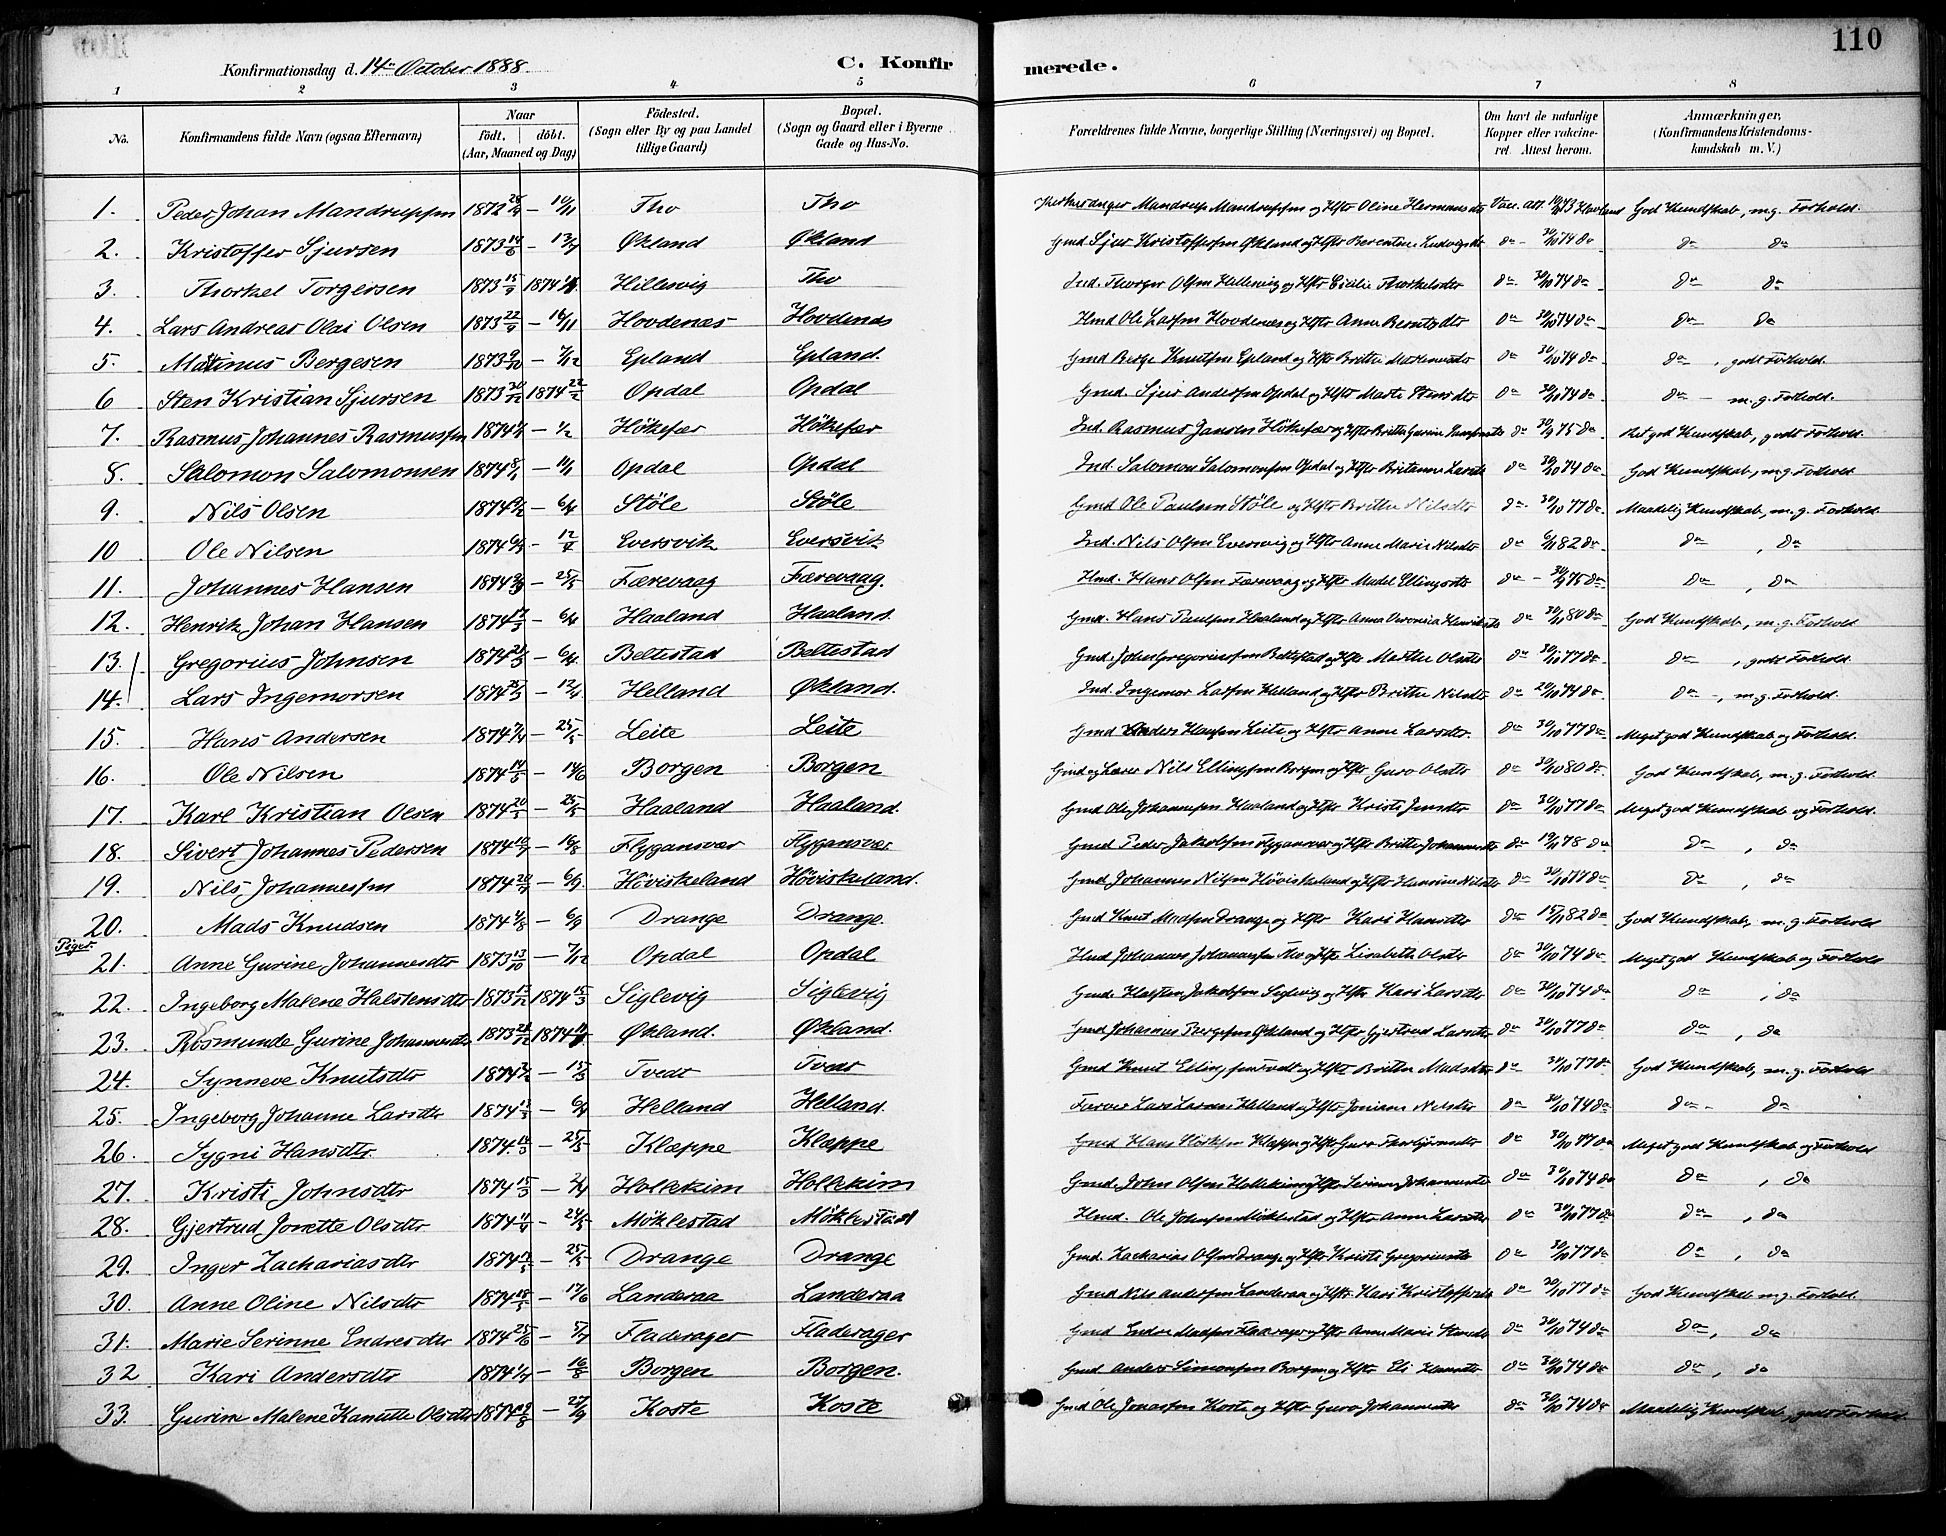 110
Konfirmationsdag d. 14de October 1888.
C. Konfirmerede.
1 2 3 4 5 6 7 8
No. Konfirmandens fulde Navn (ogsaa Efternavn) Naar födt. döbt. (Aar, Maaned og Dag) Födested. (Sogn eller By og paa Landet tillige Gaard) Bopæl. (Sogn og Gaard eller i Byerne Gade og Hus-No.) Forældrenes fulde Navne, borgerlige Stilling (Næringsvei) og Bopæl. Om havt de naturlige Kopper eller vaccineret. Attest herom. Anmærkninger. (Konfirmandens Kristendomskundskab m. V.)
1. Peder Johan Mandrupsen 1872 Tho Tho Mandrup Mandrupsen og Hstr Oline Hermansdtr God Kundskab, m.g. Forhold.
2. Kristoffer Sjursen 1873 14/6 – 13/7 Økland Økland Gmd Sjur Kristoffersen Økland og Hstr Berentine Ludvigsdtr do 30/10 74 do do do
3. Thorkel Torgersen 1873 15/9 1874 Hillesvig Tho Ind. Thorger Olsen Hillesvig og Hstr Cicilie Thorkelsdtr do 30/10 74 do do do
4. Lars Andreas Olai Olsen 1873 22/9 – 16/11 Hovdenæs Hovdenæs Hmd Ole Larsen Hovdenæs og Hstr Anne Berntsdtr do 30/10 74 do do do
5. Matinus Bergesen 1873 – 7/12 Epland Epland. Gmd Berge Knutsen Epland og Hstr Britha do 30/10 74 do do, godt Forhold.
6 Sten Kristian Sjursen 1873 30/12 1874 22/2 Opdal Opdal Gmd. Sjur Andersen Opdal og Hstr Marte Stensdtr do 30/10 74 do do – m.g. Forhold.
7. Rasmus Johannes Rasmussen 1874 – 1/2 Hökefær Hökefær Ind. Rasmus Jansen Hökefær og Hstr Britha Gurine do 75 do Ret god Kundskab, godt Forhold.
8. Salomon Salomonsen 1874 8/1 – Opdal Opdal Ind. Salomon Salomonsen Opdal og Hstr Britanna Larsdtr do 30/10 74 do God Kundskab, m.g. Forhold
9. Nils Olsen 1874 – 6/4 Stöle Stöle Gmd Ole Paulsen Stöle og Hstr Britha Nilsdtr do 30/10 77 do Maadelig Kundskab, m.g. Forhold.
10 Ole Nilsen 1874 – 12/4 Eversvik Eversvik Ind. Nils Olsen Eversvig og Hstr Anne Marie Nilsdtr do 82 do do, do
11. Johannes Hansen 1874 – 25/5 Færevaag Færevaag. Hmd. Hans Olsen Færevaag og Hstr Madel Ellingsdtr do – 75 do do, do
12. Henrik Johan Hansen 1874 17/3 – 6/4 Haaland Haaland. Gmd. Hans Paulsen Haaland og Hstr Anna Veronica Henriksdtr do 80 do God Kundskab, m.g. Forhold
13. Gregorius Johnsen 1874 – 6/4 Beltestad Beltestad Gmd. John Gregoriussen Beltestad og Hstr Martha Olsdtr do 30/10 77 do do, godt Forhold.
14. Lars Ingemorsen 1874 25/3 – 12/4 Helland Økland. Ind. Ingemor Larsen Helland og Hstr Britha Nilsdtr do 74 do do, m.g. Forhold.
15. Hans Andersen 1874 – 25/5 Leite Leite Gmd Anders Hansen Leite og Hstr Anne Larsdtr. do 30/10 77 do Meget god Kundskab og Forhold.
16. Ole Nilsen 1874 14/5 – 14/6 Borgen Borgen Gmd og Lærer Nils Ellingsen Borgen og Hstr Guro Olsdtr do 30/10 80 do. God Kundskab, m.g. Forhold.
17. Karl Kristian Olsen 1874 20/5 – 25/5 Haaland Haaland. Gmd Ole Johannesen Haaland og Hstr Kristi Jensdtr do 30/10 77 do Meget god Kundskab og Forhold.
18. Sivert Johannes Pedersen 1874 – 16/8 Flygansvær Flygansvær Gmd Peder Jakobsen Flygansvær og Hstr Britha Johannesdtr do 78 do do, do
19. Nils Johannessen 1874 – 6/9 Höviskeland Höviskeland. Gmd Johannes Nilsen Höviskeland og Hstr Hansine Nilsdtr do 30/10 77 do do, do
20. Mads Knudsen 1874 – 6/9 Drange Drange. Gmd Knut Madsen Drange og Hstr Kari Hansdtr do 82 do God Kundskab, m.g. Forhold
Piger.
21. Anne Gurine Johannesdtr 1873 13/10 – 7/12 Opdal Opdal Hmd Johannes Johannesen og Hstr Lisabeth Olsdtr do 30/10 74 do Meget god Kundskab og Forhold
22. Ingeborg Malene Halstensdtr 1873 1874 15/3 Siglevig Siglevig Gmd. Halsten Jakobsen Siglevig og Hstr Kari Larsdtr do 30/10 74 do do, do
23. Rosmunde Gurine Johannesdtr 1873 1874 Økland. Økland. Gmd Johannes Bergesen Økland og Hstr Gjertrud Larsdtr do 30/10 77 do do, do
24. Synneve Knutsdtr 1874 – 15/3 Tvedt Tvedt Gmd Knut Ellingsen Tvedt og Hstr Britha Madsdtr do 30/10 77 do God Kundskab, m.g. Forhold
25. Ingeborg Johanne Larsdtr 1874 – 6/4 Helland Helland. Farver Lars Larsen Helland og Hstr Joniane Nilsdtr do 30/10 74 do do – do
26. Sygni Hansdtr. 1874 – 25/5 Klæppe Klæppe Gmd Hans Klæppe og Hstr Guro Thorbjörnsdtr do 30/10 77 do Meget god Kundskab og Forhold
27. Kristi Johnsdtr 1874 15/3 – Hollekim Hollekim Gmd. John Olsen Hollekim og Hstr Johannesdtr do 30/10 74 do do, do
28. Gjertrud Jonette Olsdtr 1874 – 24/5 Möklestad Möklestad Hmd. Ole Johnsen Möklestad og Hstr Anne Larsdtr do 30/10 77 do do, do
29. Inger Zachariasdtr 1874 – 25/5 Drange Drange Gmd. Zacharias Olsen Drange og Hstr Kristi Gregoriusdtr do 30/10 77 do do, do
30. Anne Oline Nilsdtr 1874 18/5 – 17/6 Landeraa Landeraa Gmd Nils Andersen Landeraa og Hstr Kari Kristoffersdtr do 30/10 77 do God Kundskab m.g. Forhold.
31. Marie Serinne Endresdtr 1874 25/6 – 5/7 Fladerager Fladerager Gmd Endre Madsen og Hstr Anne Marie do 30/10 74 do do, do
32 Kari Andersdtr 1874 – 16/8 Borgen Borgen. Gmd. Anders Simonsen Borgen og Hstr Eli Hansdtr do 30/10 74 do do, do
33. Gurine Malene Kanutte Olsdtr 1874 – 27/9 Koste Koste Gmd Ole Jonassen Koste og Hstr Guro Johannesdtr do 30/10 74 do Maadelig Kundskab, godt Forhold.